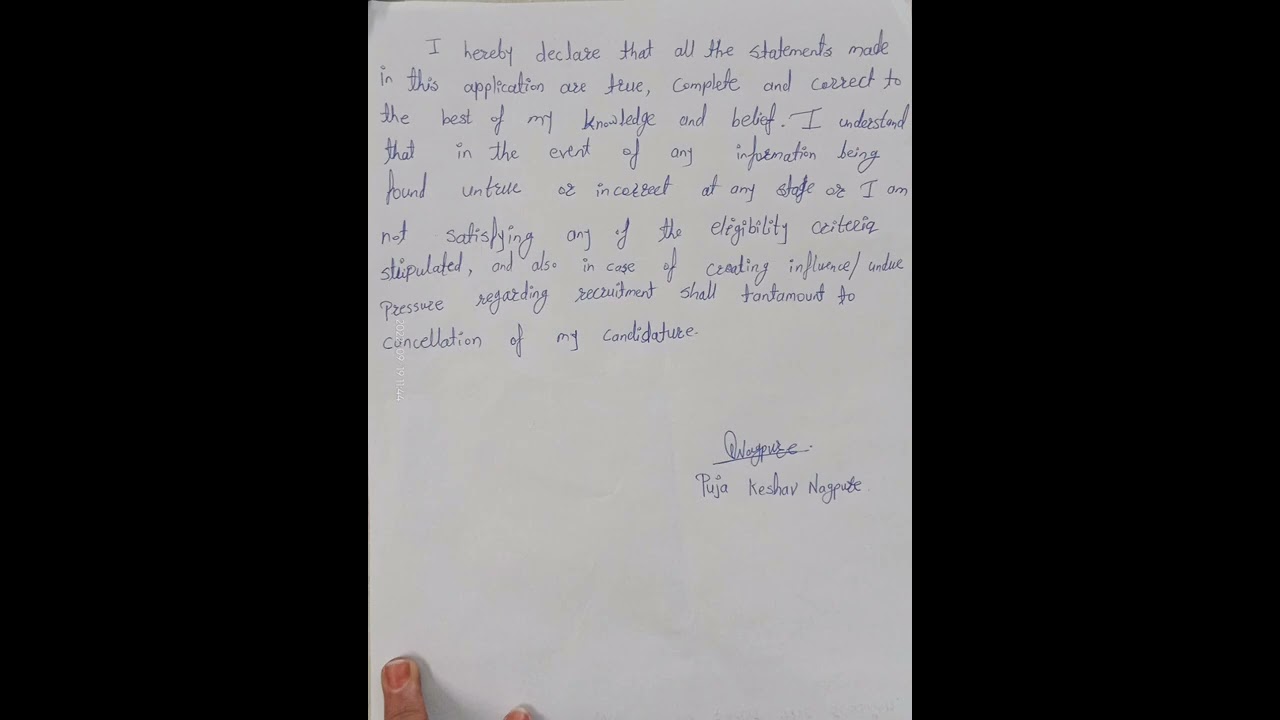 I hereby declare that all the statements made
in this application are true, complete and correct to
the best of my knowledge and belief. I understand
that in the event of any information being
found untrue or incorrect at any stage or I am
not satisfying any of the eligibility criteria
stipulated, and also in case of creating influence/undue
pressure regarding recruitment shall tantamount to
cancellation of my candidature.
Nagpure.
Puja Keshav Nagpure